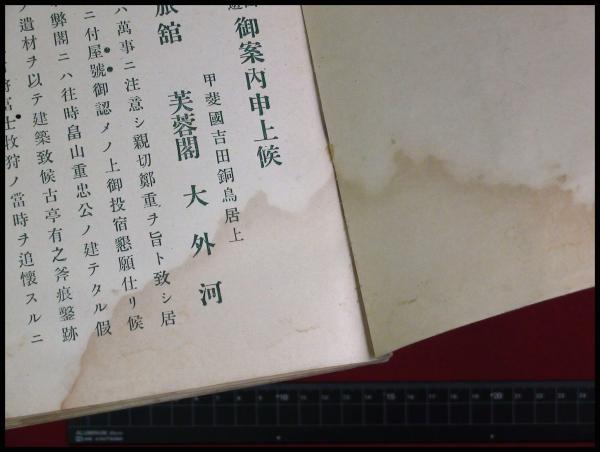 御案內申上候
甲斐國吉田銅鳥居上
旅舘　芙蓉閣　大外河
ハ萬事ニ注意シ親切鄭重ヲ旨ト致シ居
ニ付屋號御認メノ上御投宿懇願仕リ候
弊閣ニハ往時畠山重忠公ノ建テタル假
ノ遺材ヲ以テ建築致候古亭有之斧痕鑿跡
富士牧狩ノ當時ヲ追懷スルニ